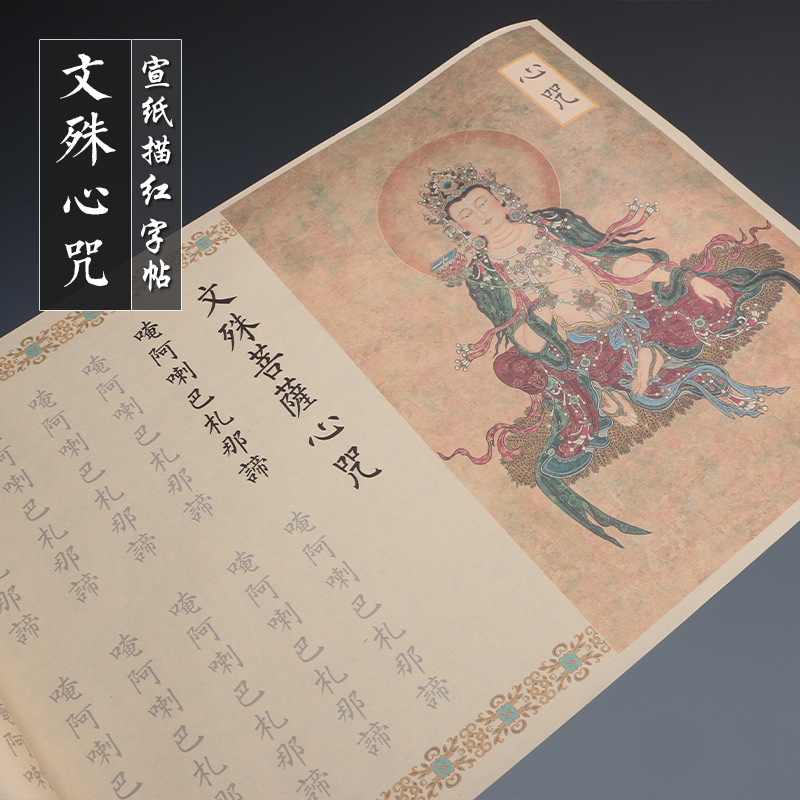 文殊心咒
宣纸描红字帖
心咒
文殊菩薩心咒
唵阿喇巴札那諦
唵阿喇巴札那諦
唵阿喇巴札那諦
阿喇巴札那諦
唵阿喇巴札那諦
唵阿喇巴札那諦
唵阿喇巴札那諦
唵阿喇巴札那
唵阿喇巴
阿喇